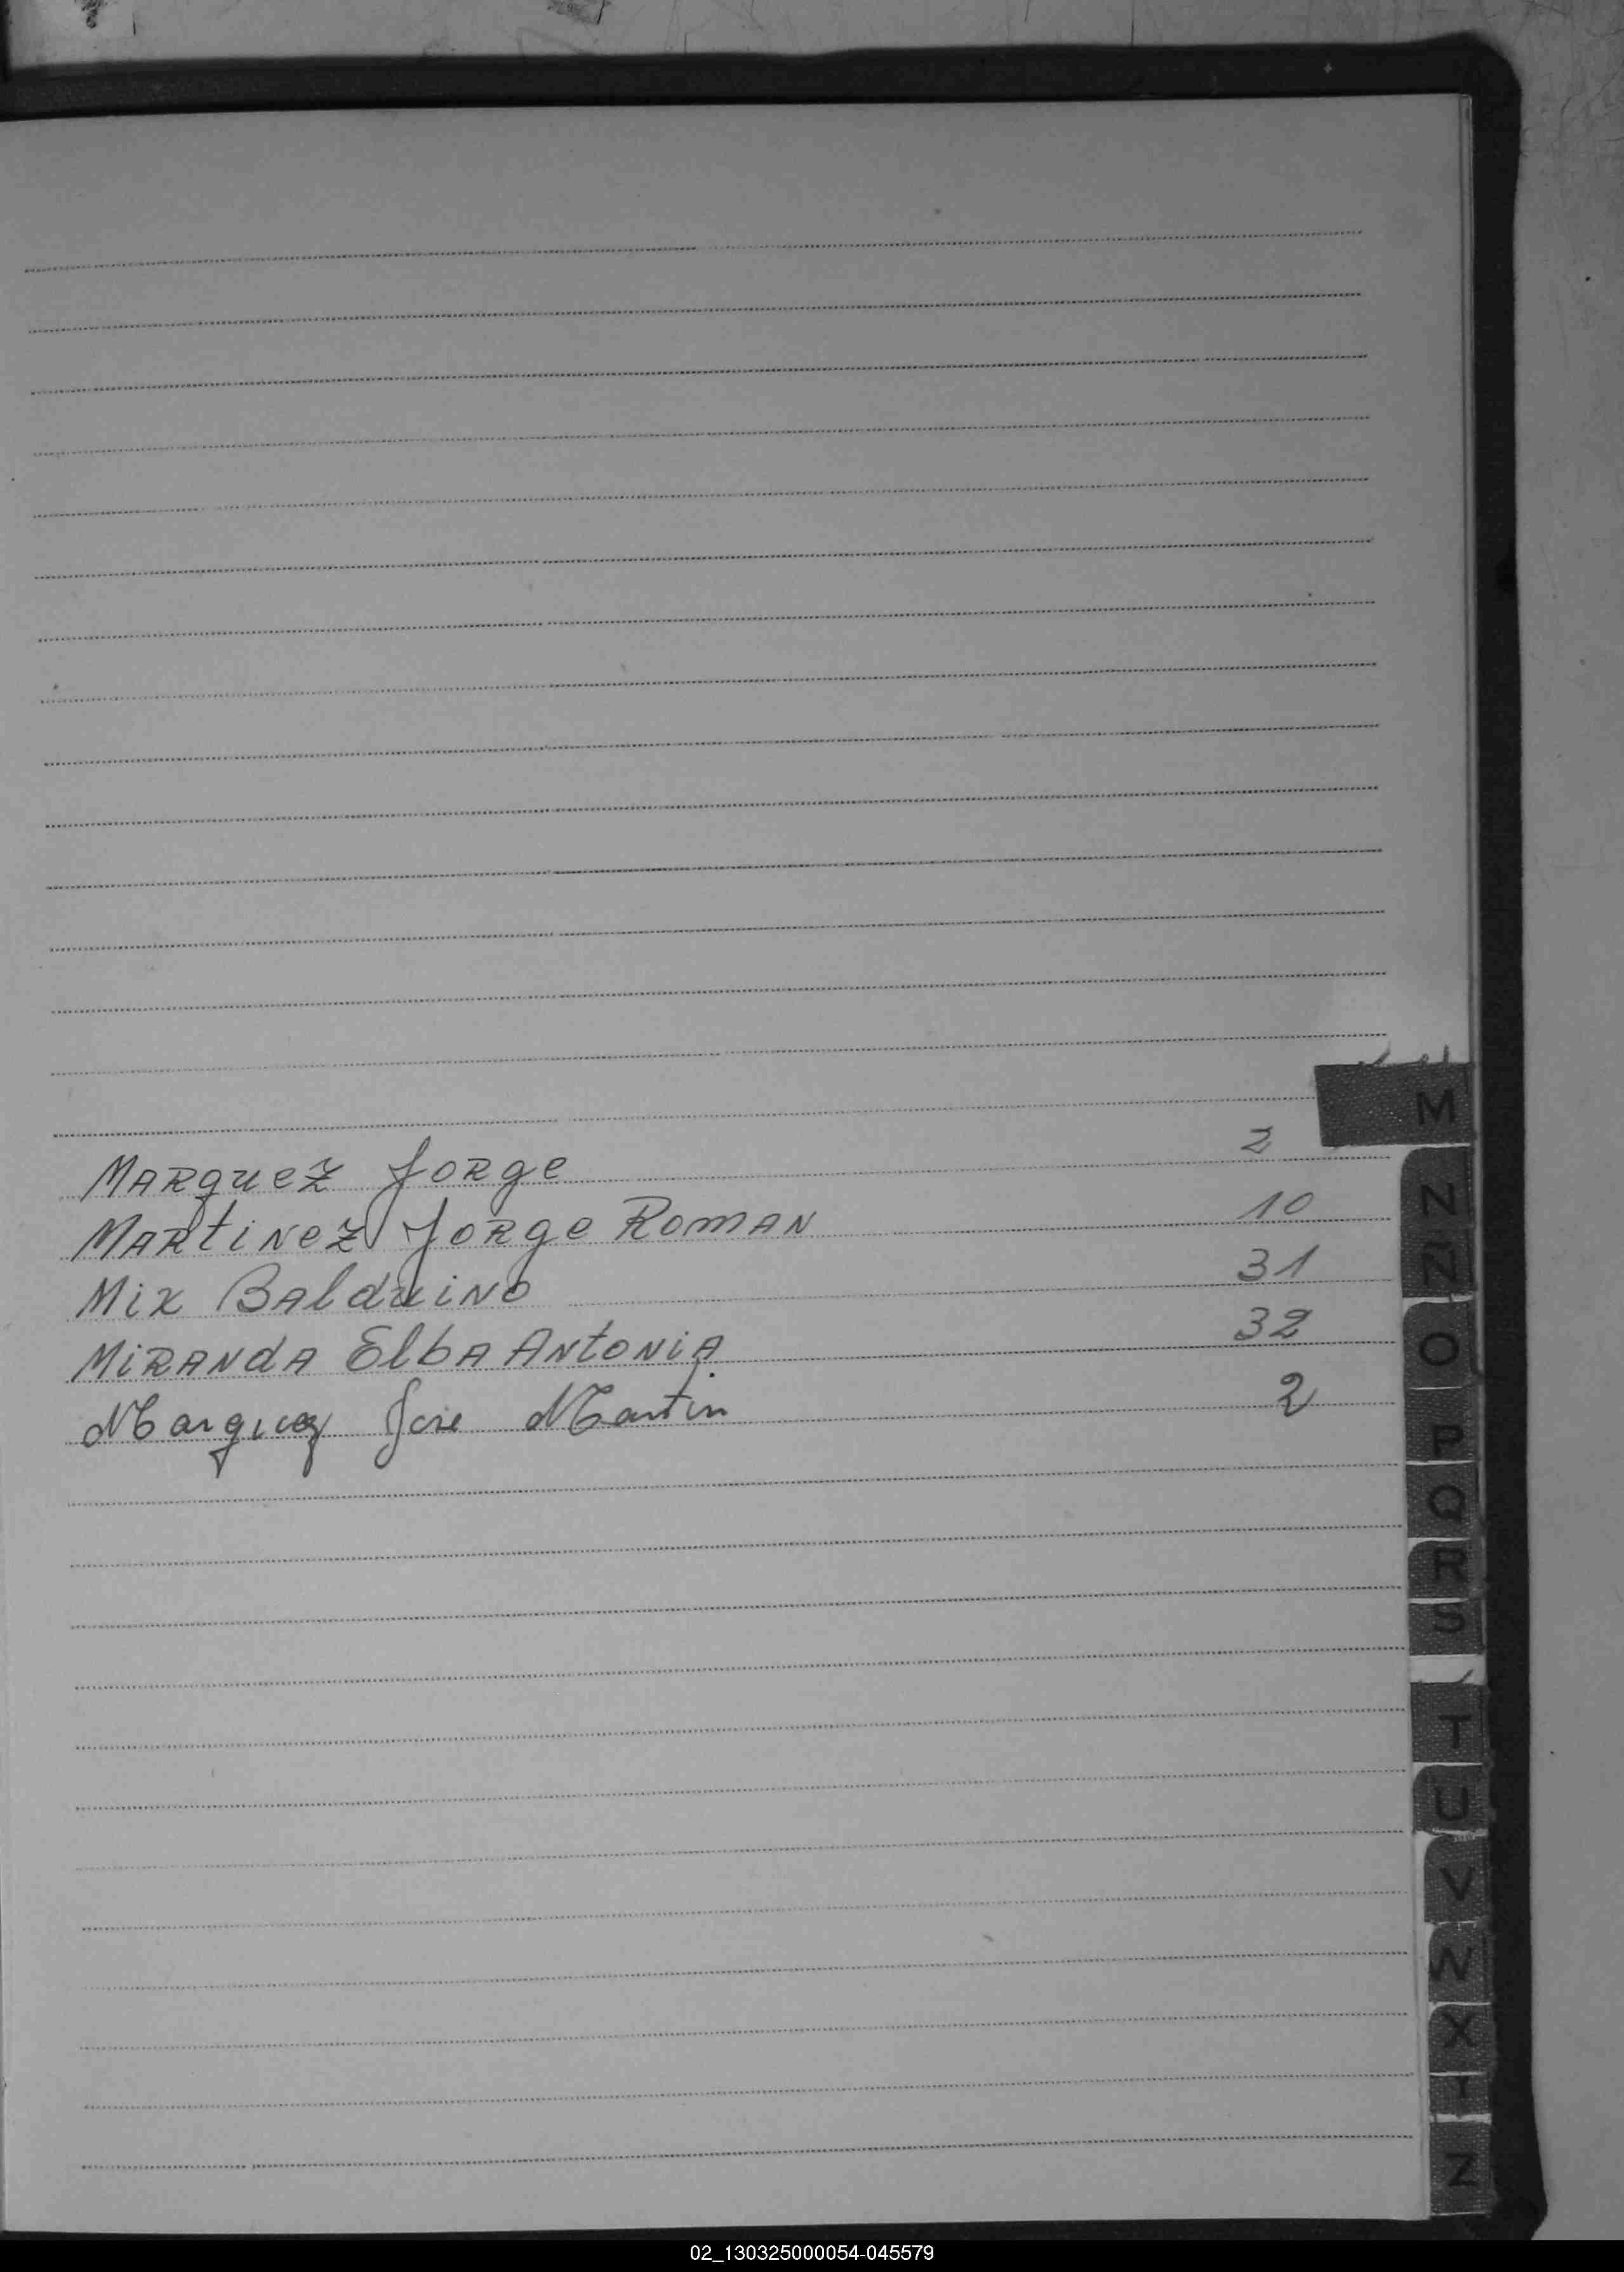 M
MARquez JORge 2
MARtiNez JORge ROMAN 10
Mix BAlduiNo 31
MiRANdA ElbA ANtoNiA. 32
Marquez Jose Martin 2
N
Ñ
O
P
Q
R
S
T
U
V
W
X
Z
02_130325000054-045579